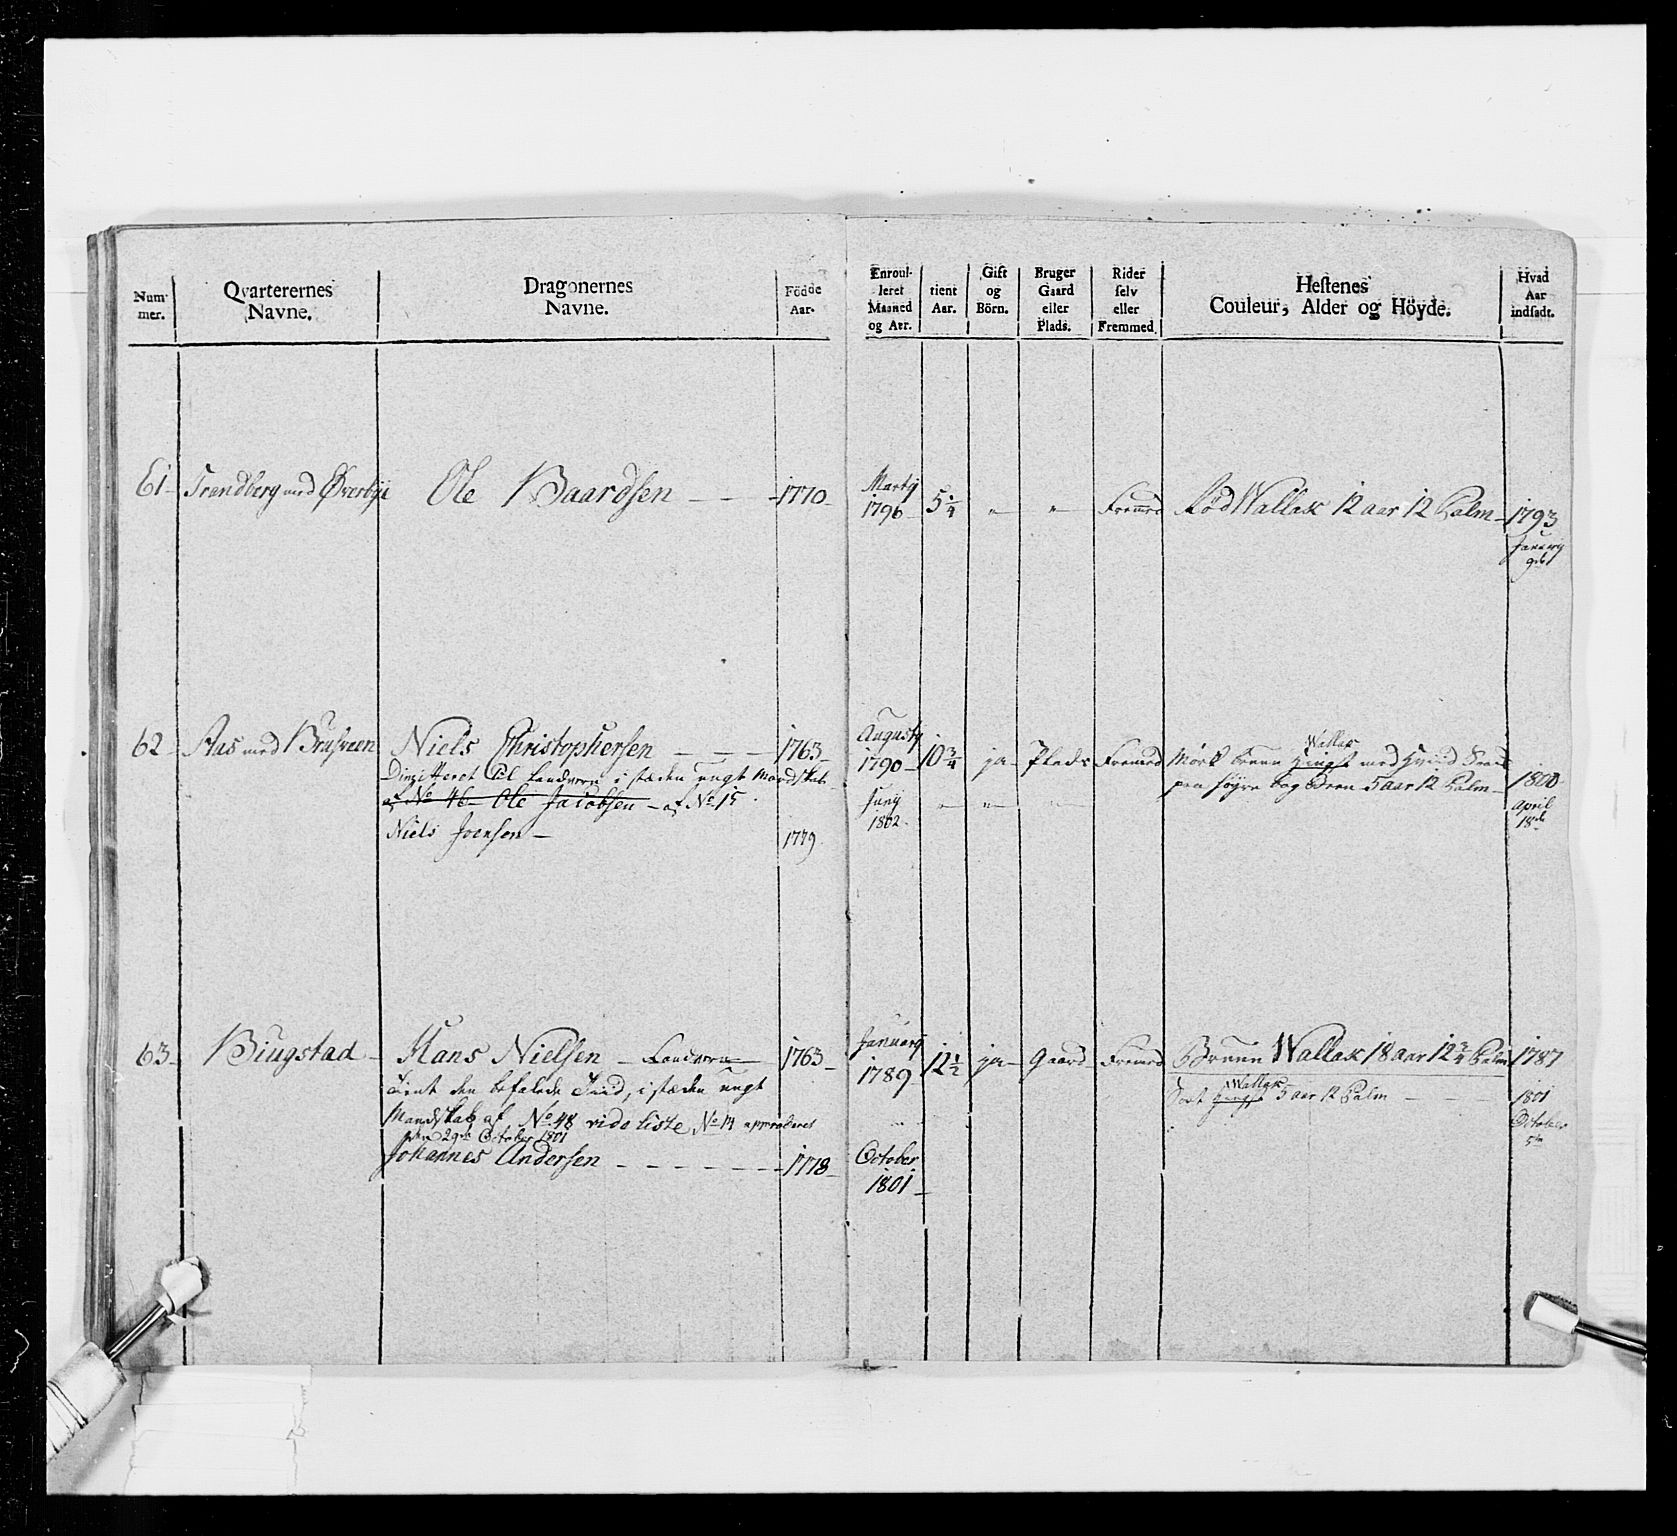 Num-
mer.
Qvarterernes
Navne.
Dragonernes
Navne.
Födde
Aar.
Enroul-
leret
Maaned
og Aar.
tient
Aar.
Gift
og
Börn.
Bruger
Gaard
eller
Plads.
Rider
selv
eller
Fremmed.
Hestenes
Couleur, Alder og Höyde.
Hvad
Aar
indsadt.
61 Trandberg med Øverbye Ole Baardsen 1770 Martij
1796 5 1/4 " " Fremed Rød Wallak 12 aar 12 Palm 1793
Januarij
62 Aas med Brufveen Niels Christophersen 1763 Augusty
1790 10 3/4 ja Plads Fremed Mørk bruun Hingst Wallak med Hviid
paa høyre bag Been 5 aar 12 Palm 1800
April
18de
Dimitteret til Landværn i stæden ungt Mandskab
af No 46 Ole Jacobsen af No 15
Juny
1802 " " "
Niels Joensen 1779
63 Biugstad Hans Nielsen Landværn 1763 January
1789 12 1/2 ja Gaard Fremed Bruun Wallak 18 aar 12 3/4 Palm 1787
Tient den befalede Tiid, i stæden ungt
Sort Hingst Wallak 5 aar 12 Palm 1801
October
5te
Mandskab af No 48 vide Liste No 14 approberet
den 29de October 1801
Johannes Andersen 1778 October
1801